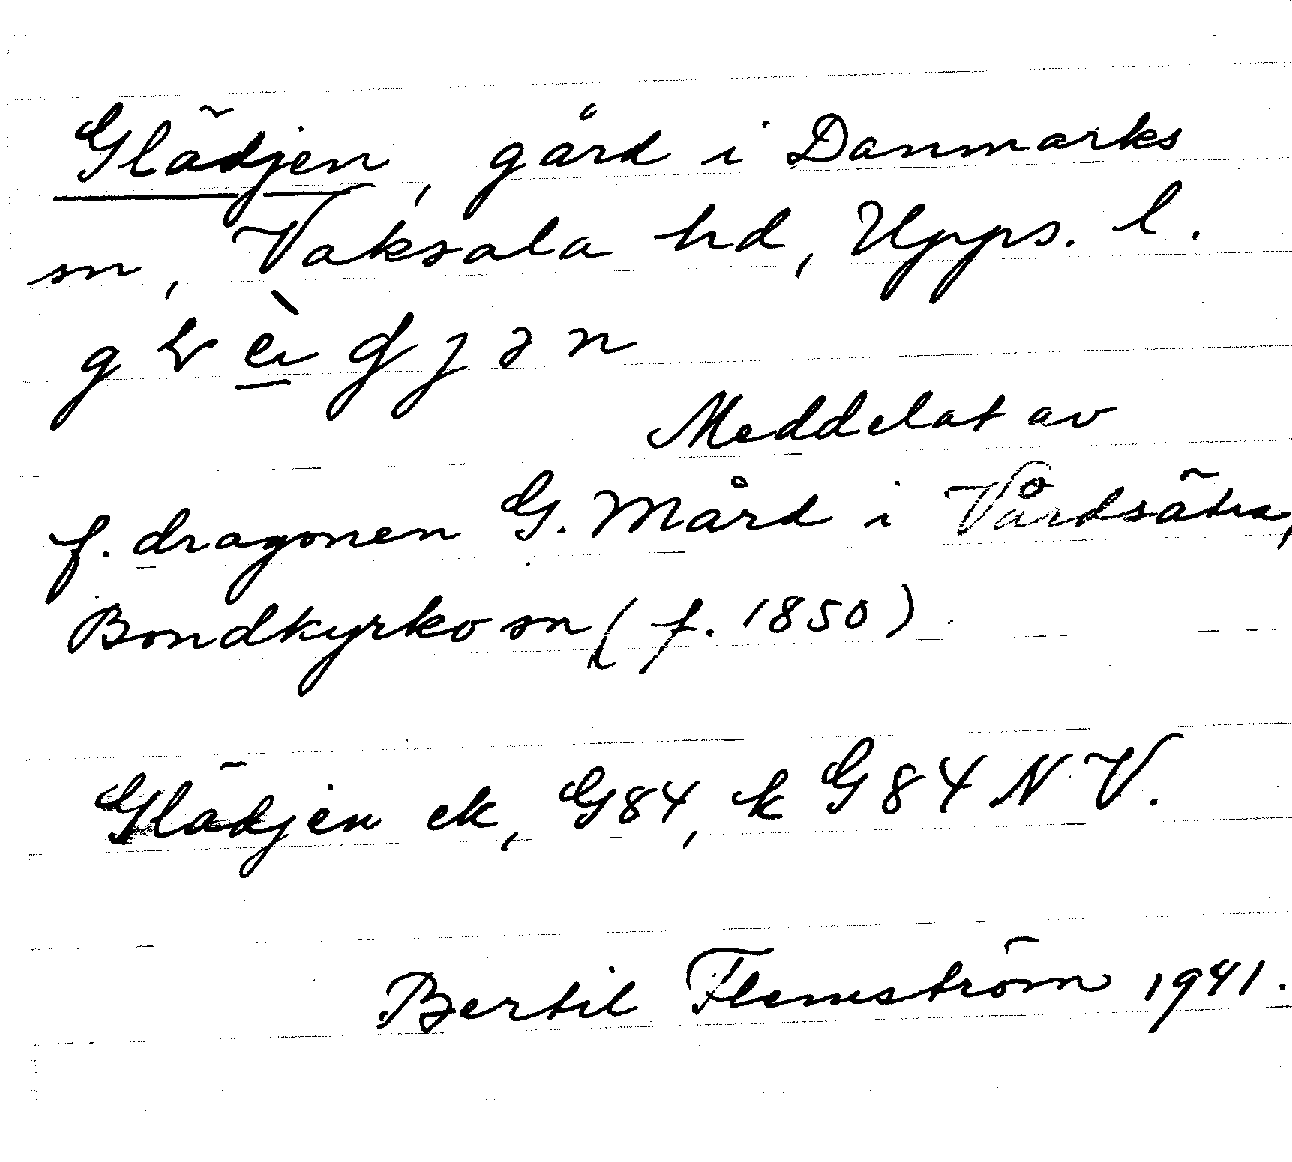 Glädjen, gård i Danmarks
sn, Vaksala hd, Upps. l.
Meddelat av
f. dragonen G. Mård i Vårdsätra,
Bondkyrko sn (f. 1850)
Glädjen ek, G84, k G84 NV.
Bertil Flemström 1941.